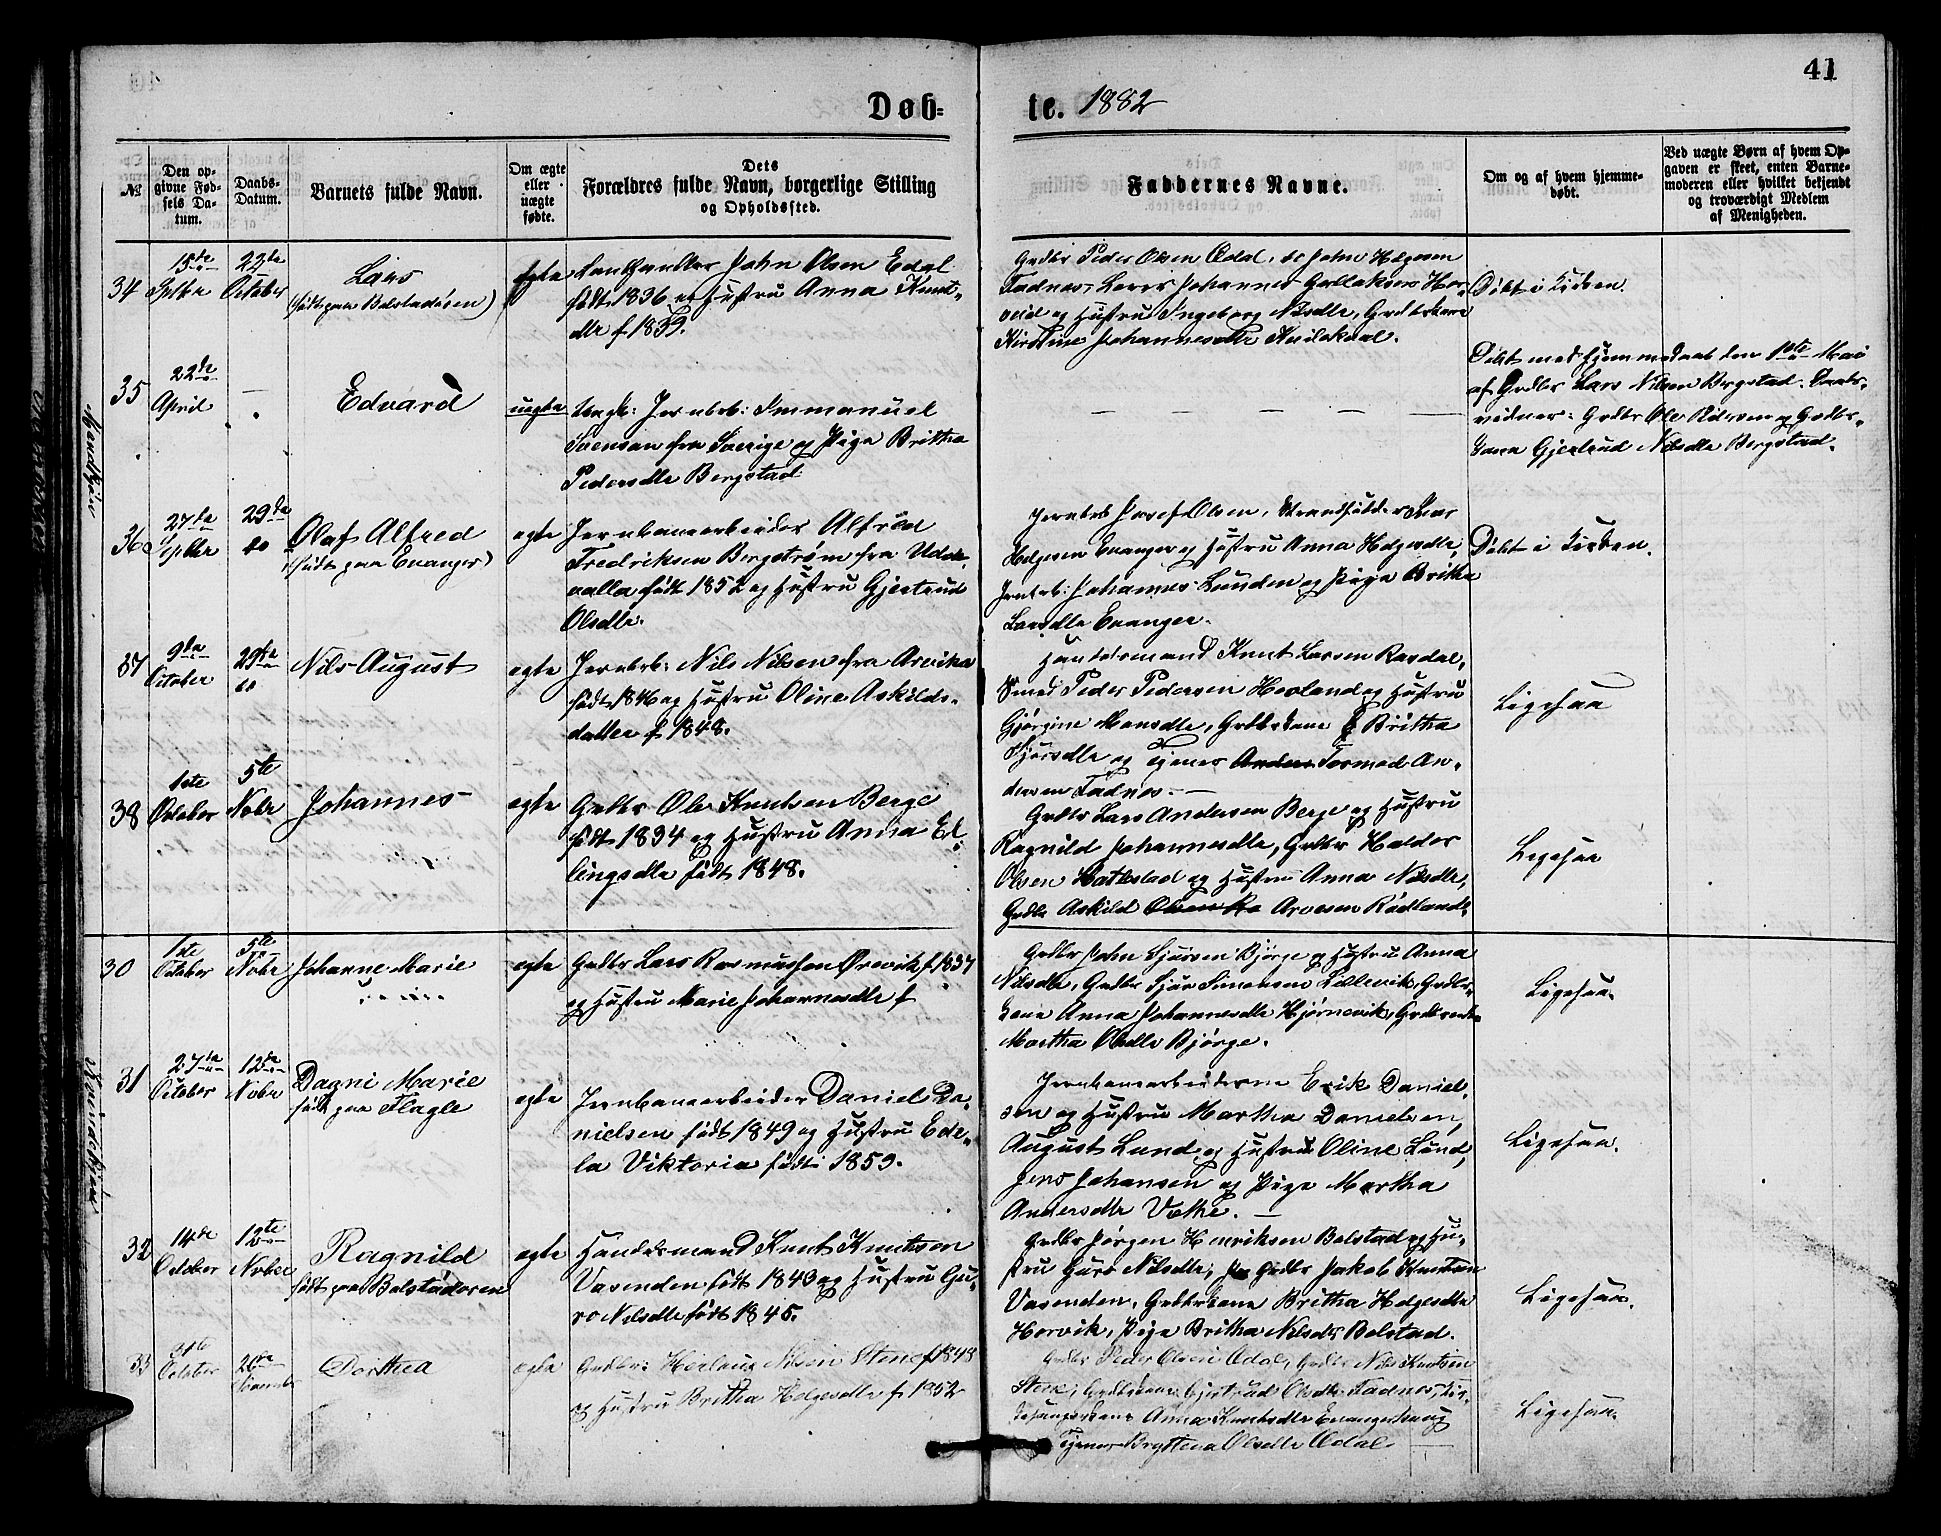 41
Døb-
te. 1882
№
Den op-
givne Fød-
sels Da-
tum.
Daabs-
Datum.
Barnets fulde Navn.
Om ægte
eller
uægte
fødte.
Dets
Forældres fulde Navn, borgerlige Stilling
og Opholdssted.
Faddernes Navne.
Om og af hvem hjemme-
døbt.
Ved uægte Børn af hvem Op-
gaven er skeet, enten Barne-
moderen eller hvilket bekjendt
og troværdigt Medlem
af Menigheden.
Mandkjøn
34
15de
22de
October
Lars
(født paa Bolstadøren)
egte
Landhandler John Olsen Edal
født 1836 og Hustru Anna Knuts-
dtr f 1839.
Grdbr Peder Olsen Ødal, do John Helgesen
Fadnes, Lærer Johannes Gullaksen Hor-
veid og Hustru Ingeborg Nilsdtr, Grdbrkone
Kirstine Johannesdtr
Døbt i Kirken.
35
22de
April
—
Edvard
uegte
Ungk: Jernbrb: Immanuel
Svenson fra Sverige og Pige Britha
Pedersdtr Bergstad
— — — — — —
Døbt med Hjemmedaab den 1ste Mai
af Grdbr Lars Nilsen Bergstad. Daabs-
vidner: Grdbr Ole Pedersen og Grdbr-
kone Gjertrud Nilsdtr Bergstad.
36
27de
Septbr
29de
do
Olaf Alfred
(født paa Evanger)
egte
Jernbanearbeider Alfred
Fredriksen Bergstrøm fra Udde-
valla født 1852 og Hustru Gjertrud
Olsdtr.
Jernbrb Josef Olsen, Strandsidder
Helgesen Evanger og Hustru Anna Helgesdtr,
Jernbrb: Johannes Lunden og Pige Britha
Larsdtr Evanger.
Døbt i Kirken.
37
9de
October
29de
do
Nils August
egte
Jernbrb: Nils Nilsen fra Arvika
født 1846 og Hustru Oline Askilds-
datter f 1848.
Handelsmand Knut Larsen Rasdal,
Smed Peder Pedersen Horland og Hustru
Gjørgine Monsdtr, Grdbrkone Britha
Sjursdtr og Tjener Tormod An-
dersen Fadnes.
Ligesaa
38
1ste
October
5te
Nobr
Johannes
egte
Grdbr Ole Knutsen Berge
født 1834 og Hustru Anna Ed-
lingsdtr født 1848.
Grdbr Lars Andersen Berge og Hustru
Ragnild Johannesdtr, Grdbr Haldor
Olsen Hatlestad og Hustru Anna Nilsdtr,
Grdbr Askild Arvesen Rødland.
Ligesaa
Kvindekjøn
30
1ste
October
5te
Nobr
Johanne Marie
egte
Grdbr Lars Rasmussen Ørevik f 1837
og Hustru Marie Johannesdtr f
Grdbr John Sjursen Bjørge og Hustru Anna
Nilsdtr, Grdbr Sjur Simonsen Grdbr-
kone Anna Johannesdtr Hjørnevik,
Martha Olsdtr Bjørge.
Ligesaa.
31
27de
October
12te
Nobr
Dagni Marie
født paa Flagte
egte
Jernbanearbeider Daniel Da-
nielsen født 1849 og Hustru Ede-
la Viktoria født 1859.
Jernbanearbeiderne Erik Daniel-
sen og Hustru Martha Danielsen,
August Lund og Hustru Oline Lund,
Jens Johansen og Pige Martha
Andersdtr Væthe. —
Ligesaa.
32
14de
October
12te
Nober
Ragnild
født paa Bolstadøren
egte
Handelsmand Knut Knutsen
Vasenden født 1843 og Hustru Gu-
ro Nilsdtr født 1845.
Grdbr Jørgen Henriksen Bolstad og Hu-
stru Guro Nilsdtr, Grdbr Jakob Knutsen
Vasenden, Grdbrkone Britha Helgesdtr
Horvik, Pige Britha Nilsdtr Bolstad.
Ligesaa.
33
October
Dorthea
egte
Grdbr: Herlaug Nilsen Stene f 1848
og Hustru Britha Helgesdtr f 1852
Grdbr Peder Olsen Ødal, Grdbr Nils Knutsen
Stene, Grdbrkone Gjertrud Olsdtr Fadnes,
Anna Knutsdtr og
Tjener Olsdtr Ødal.
Ligesaa.